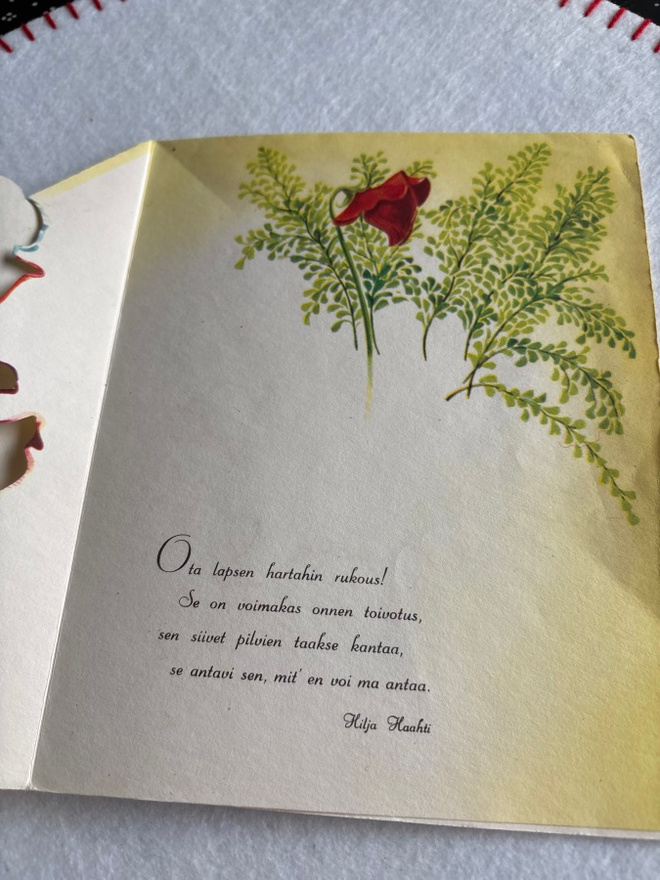 Ota lapsen hartahin rukous!
Se on voimakas onnen toivotus,
sen siivet pilvien taakse kantaa,
se antavi sen, mit' en voi ma antaa.
Hilja Haahti